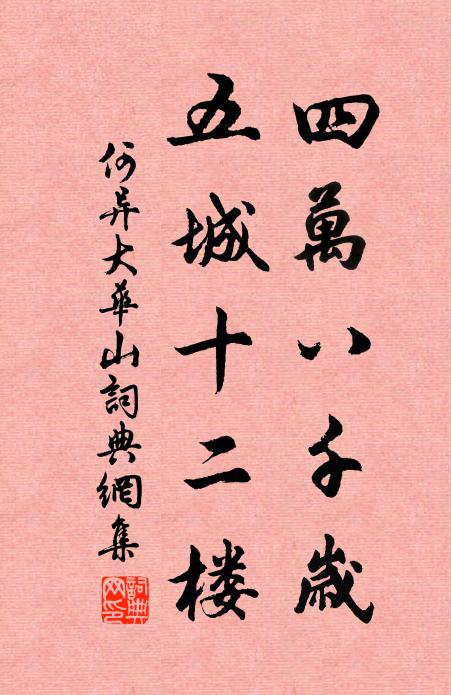 四萬八千歲
五城十二楼
何异大華山詞典網集
詞典網印